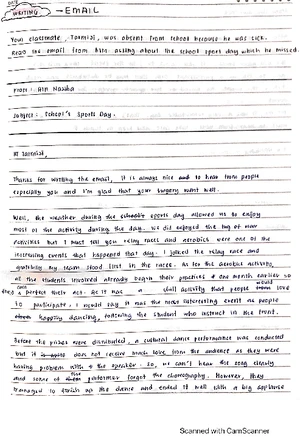 WRITING - EMAIL
Your classmate, Tasmiul, was absent from school because he was sick.
Read the email from him asking about the school sport day which he missed.
From: Ain
Subject: School's Sports Day.
Hi Tasmiul,
Thanks for writting the email, it is always nice to hear from people
especially you and I'm glad that your surgery went well.
Well, the weather during the sports day allowed us to enjoy
most of the activity during the day. We did enjoyed the tug of war
activities but I must tell you relay races and aerobics were one of the
interesting events that happened that day. I joined the relay race and
my team stood first in the races. As for the aerobic activity,
all the students involved already begin their practices a one month earlier so
they can perfect their act. As it was activity that people would love
to participate. I would say it was the most interesting event as people
happily dancing, following the student who instruct in the front.
Before the prizes were distributed, a cultural dance performance was conducted
but it does not receive much love from the audience as they were
having problem with the speaker. So, we can't hear the song clearly
and some of the performer forgot the choreography. However, they
managed to finish up the dance and ended it well with a big applause
Scanned with CamScanner